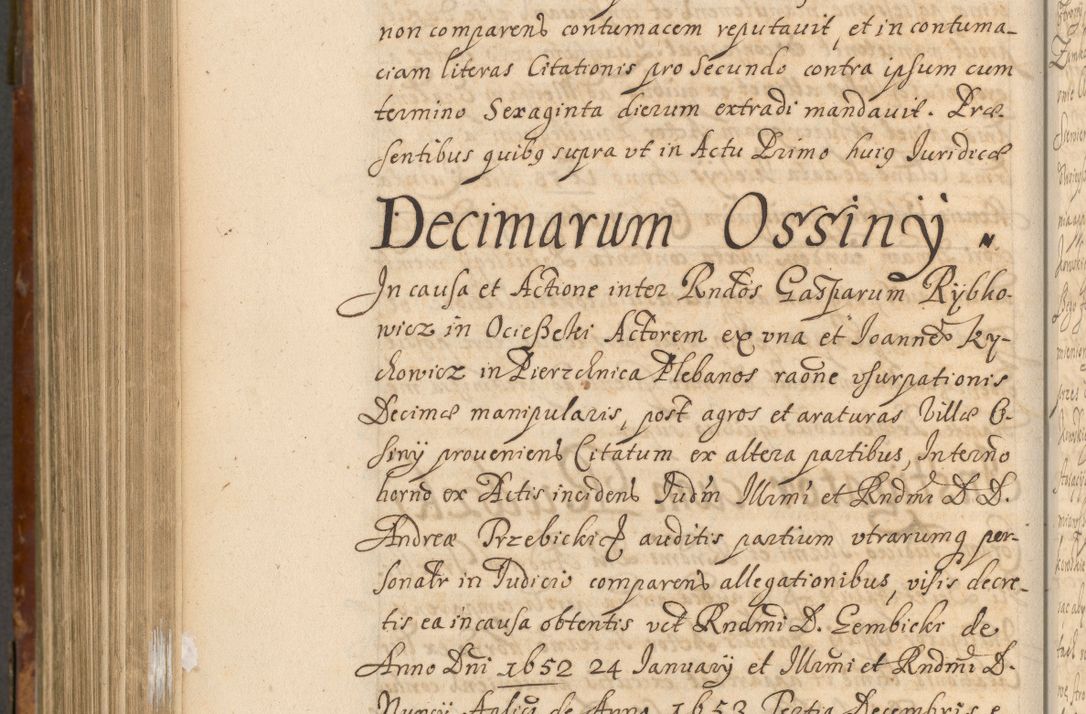 non comparens contumacem reputauit, et in contuma-
ciam literas Citationis pro Secundo contra ipsum cum
termino Sexaginta dierum extradi mandauit. Præ-
sentibus quibq supra vt in Actu Primo huiq Iuridicæ
Decimarum Ossinÿ
In causa et Actione inter Rndos Gasparum Rÿbko-
wicz in Ocießeki Actorem ex vna et Ioannem Ky-
chowicz in Pierzchnica Plebanos raone vsurpationis
Decimæ manipularis, post agros et araturas Villæ O-
siny proueniens Citatum ex altera partibus, Interno
horno ex Actis incidens Iudm Illrmi et Rndmi D. D.
Andreæ Trzebicki auditis partium vtrarumq per-
sonatr in Iudicio comparens allegationibus, visis decre-
tis ea in causa obtentis vct Rndmi D. Gembicki de
Anno Dni 1652 24 Ianuarÿ et Illrmi et Rndmi D.
Nuncÿ Aplici de Anno 1653 Tertia Decembris e